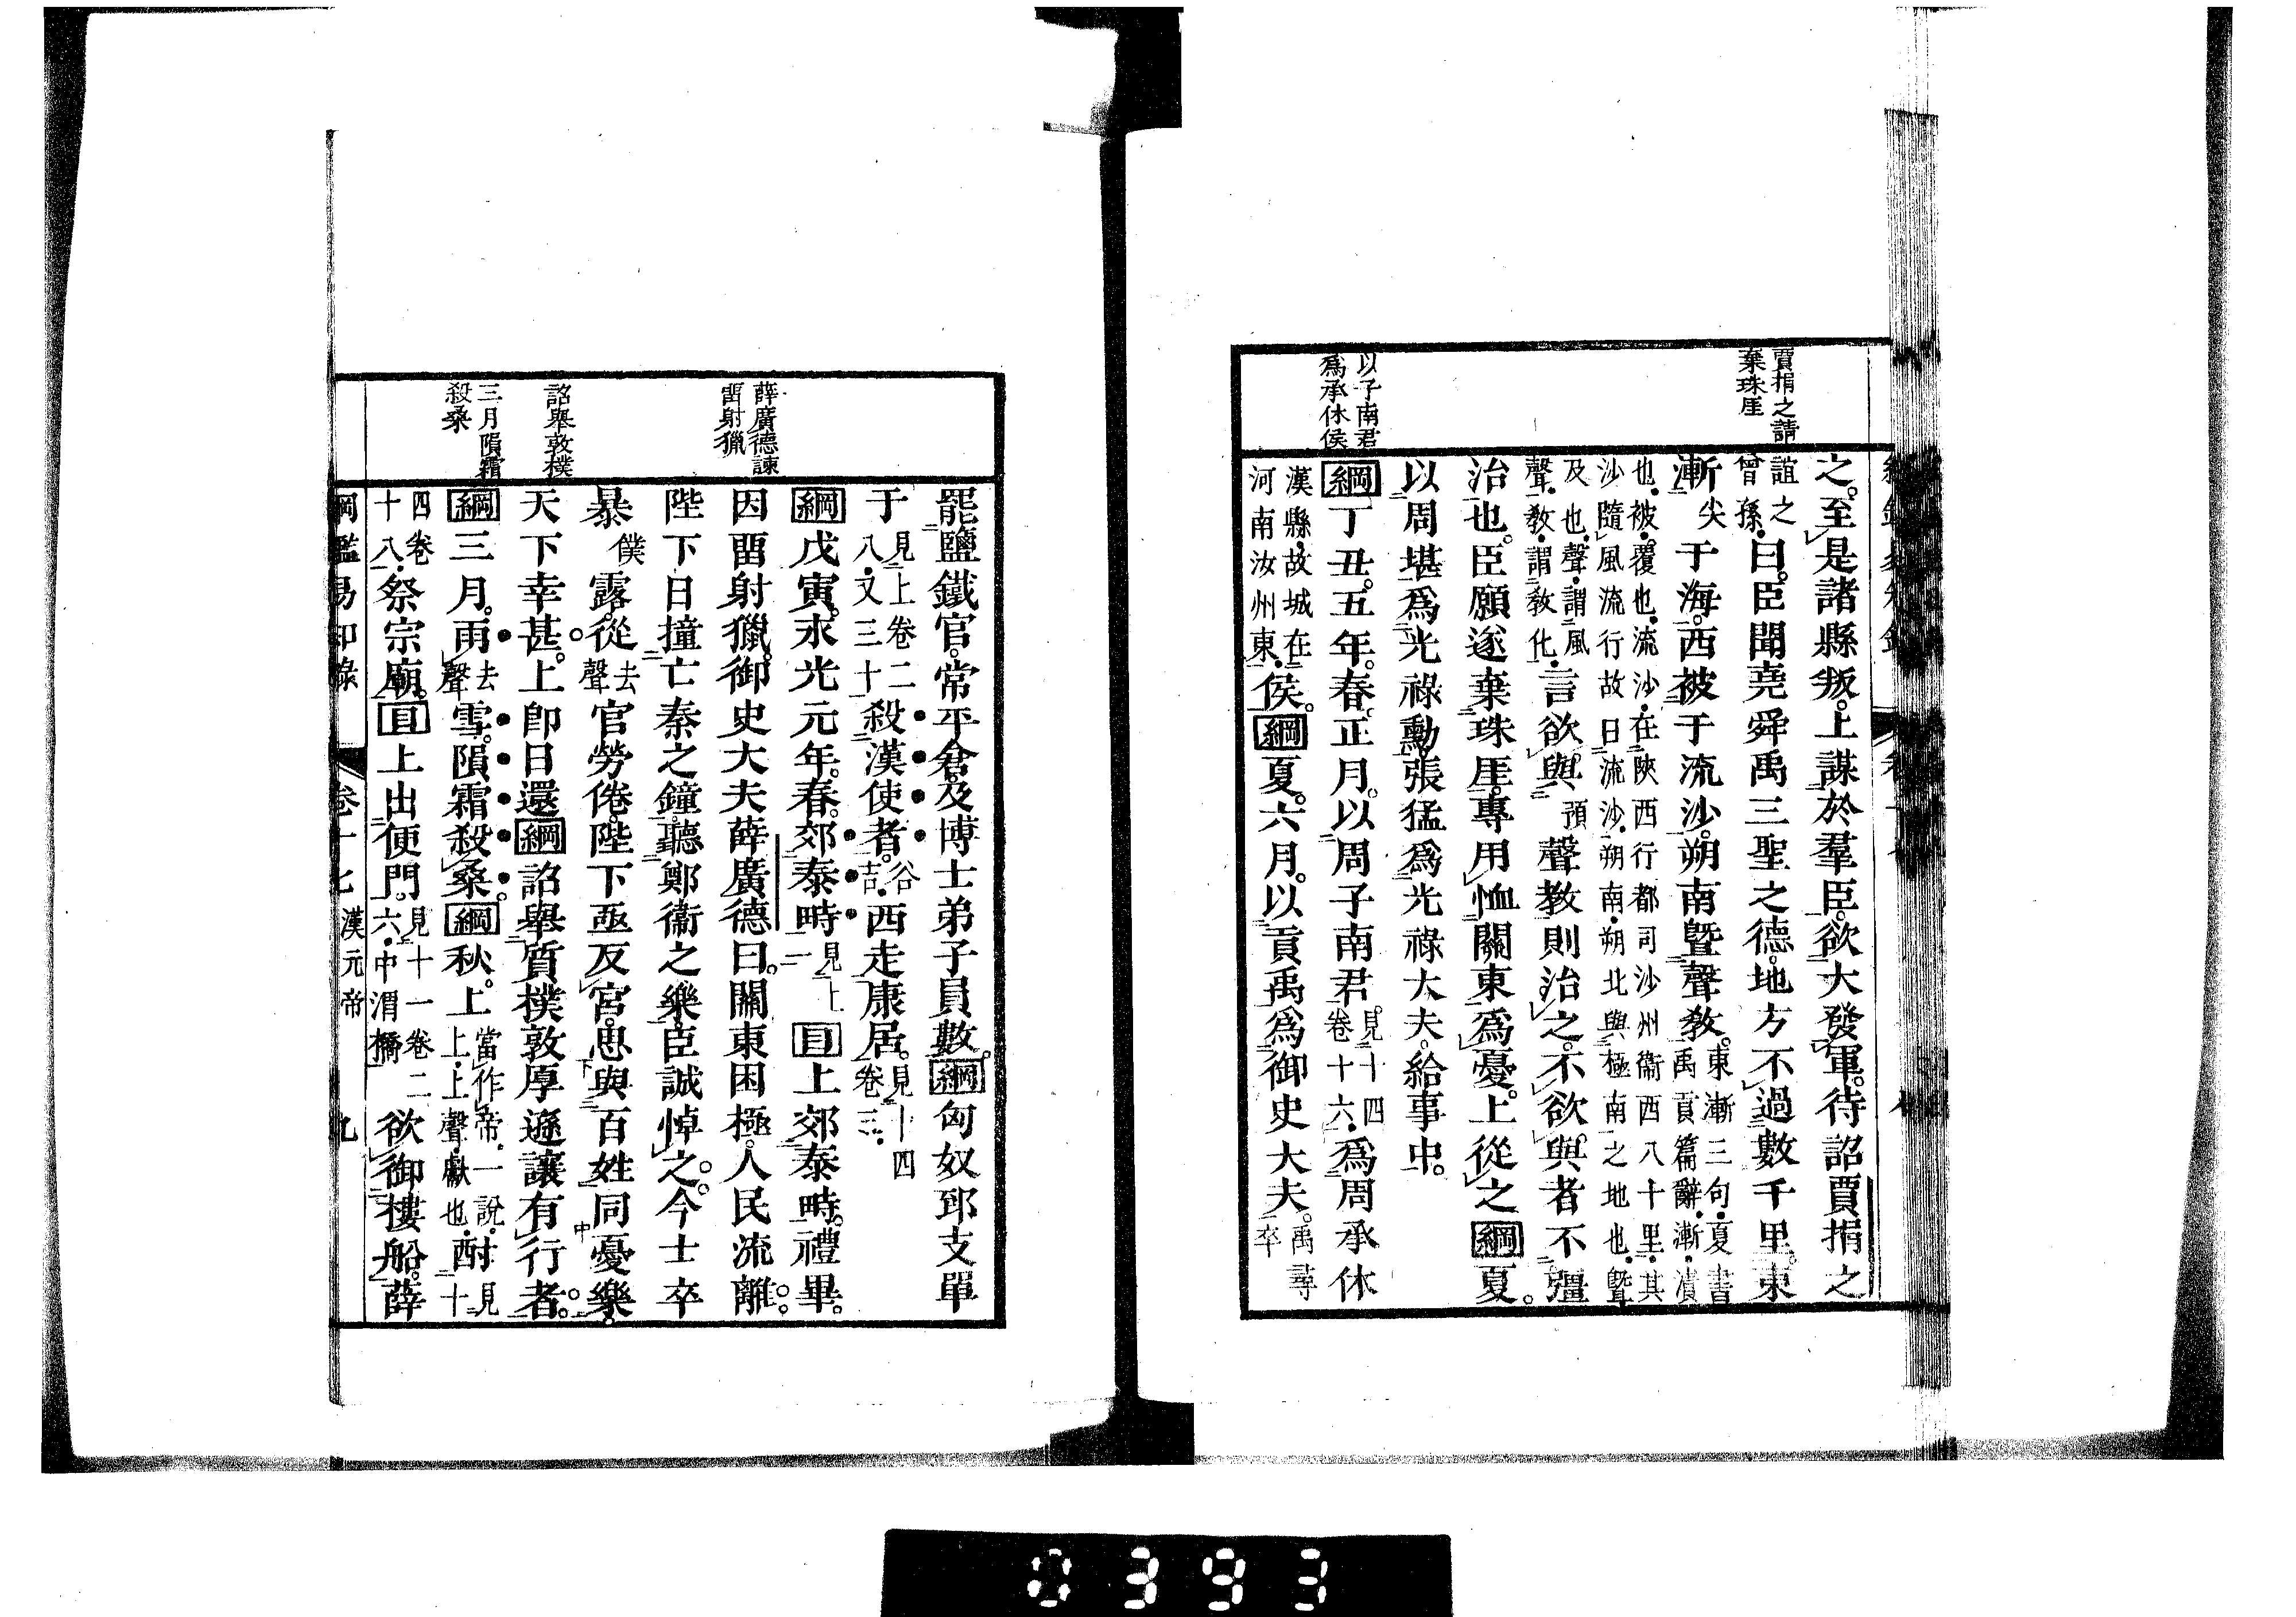 賈捐之請
棄珠厓
以子南君
爲承休侯
之。至是諸縣叛。上謀於羣臣。欲大發軍。待詔賈捐之
誼之曾孫。曰。臣聞堯舜禹三聖之德。地方不過數千里。東
漸尖于海。西被于流沙。朔南曁聲教。東漸三句。夏書禹貢篇辭。漸。漬
也。被。覆也。流沙。在陝西行都司沙州衞西八十里。其沙隨風流行故曰流沙。朔南。朔北與極南之地也。曁
及也。聲。謂風聲。教。謂教化。言欲與。預聲教則治之。不欲與者不彊
治也。臣願遂棄珠厓。專用恤關東爲憂。上從之綱夏。
以周堪爲光祿勳。張猛爲光祿大夫。給事中。
綱丁丑。五年。春。正月。以周子南君。見十四卷十六。爲周承休
漢縣。故城在河南汝州東。侯。綱夏。六月。以貢禹爲御史大夫。禹尋卒
薛廣德諫
畱射獵
詔舉敦樸
三月隕霜
殺桑
罷鹽鐵官。常平倉。及博士弟子員數。綱匈奴郅支單
于見上卷二八。又三十殺漢使者。谷吉。西走康居。見十四卷三。
綱戊寅。永光元年。春。郊泰畤見上一目上郊泰畤。禮畢。
因畱射獵。御史大夫薛廣德曰。關東困極。人民流離。
陛下日撞亡秦之鐘。聽鄭衞之樂。臣誠悼之。今士卒
暴僕露。從去聲官勞倦。陛下亟反宮。思與百姓同憂樂。
天下幸甚。上卽日還綱詔舉質樸敦厚遜讓有行者。
綱三月。雨去聲雪。隕霜殺桑。綱秋。上當作帝。一說。上。上聲。獻也。酎見十
四卷十八。祭宗廟。目上出便門。見十一卷二六。中渭橋欲御樓船。薛
綱鑑易知錄 卷十七 漢元帝 九
0393